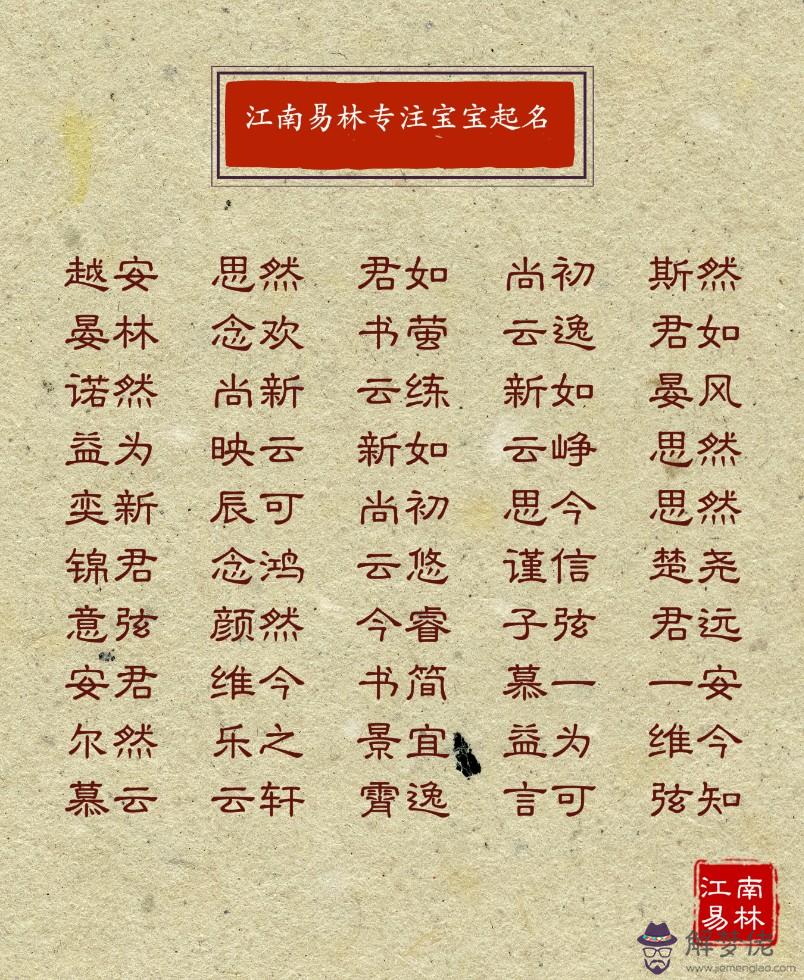 江南易林专注宝宝起名
越安 思然 君如 尚初 斯然
晏林 念欢 书萤 云逸 君如
诺然 尚新 云练 新如 晏风
益为 映云 新如 云峥 思然
奕新 辰可 尚初 思今 思然
锦君 念鸿 云悠 谨信 楚尧
意弦 颜然 今睿 子弦 君远
安君 维今 书简 慕一 一安
尔然 乐之 景宜 益为 维今
慕云 云轩 霄逸 言可 弦知
江南
易林
解梦佬
www.jiemenglao.com